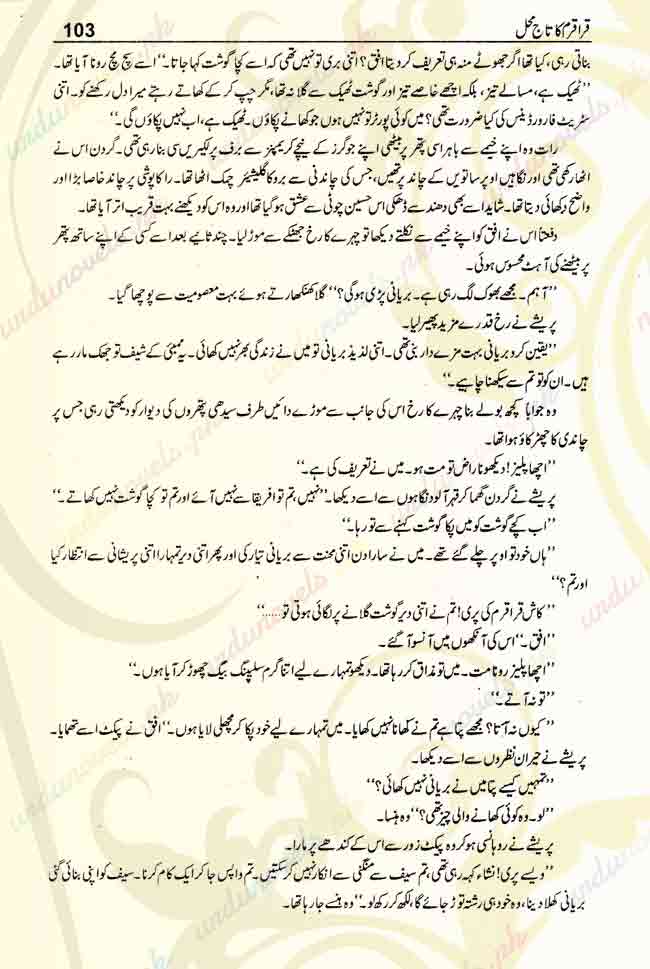 قراقرم کا تاج محل 103
بناتی رہی، کیا تھا اگر جھوٹے منہ ہی تعریف کر دیتا افق؟ اتنی بری تو نہیں تھی کہ اسے کچا گوشت کہا جاتا۔“ اسے سچ مچ رونا آیا تھا۔
”ٹھیک ہے، مسالے تیز، بلکہ اچھے خاصے تیز اور گوشت ٹھیک سے گلا نہ تھا، مگر چپ کر کے کھاتے رہتے میرا دل رکھنے کو۔ اتنی
سٹریٹ فارورڈینس کی کیا ضرورت تھی؟ میں کوئی پورٹر تو نہیں ہوں جو کھانے پکاؤں۔ ٹھیک ہے، اب نہیں پکاؤں گی۔“
رات وہ اپنے خیمے سے باہر اسی پتھر پر بیٹھی اپنے جوگرز کے نیچے کریمپنز سے برف پر لکیریں سی بنا رہی تھی۔ گردن اس نے
اٹھا رکھی تھی اور نگاہیں اوپر ساتویں کے چاند پر تھیں، جس کی چاندنی سے بروکا گلیشیئر چمک اٹھا تھا۔ راکا پوشی پر چاند خاصا بڑا اور
واضح دکھائی دیتا تھا۔ شاید اسے بھی دھند سے ڈھکی اس حسین چوٹی سے عشق ہو گیا تھا اور وہ اس کو دیکھنے بہت قریب اتر آیا تھا۔
دفعتاً اس نے افق کو اپنے خیمے سے نکلتے دیکھا تو چہرے کا رخ جھٹکے سے موڑ لیا۔ چند ثانیے بعد اسے کسی کے اپنے ساتھ پتھر
پر بیٹھنے کی آہٹ محسوس ہوئی۔
”آہم۔ مجھے بھوک لگ رہی ہے۔ بریانی پڑی ہوگی؟“ گلا کھنکھارتے ہوئے بہت معصومیت سے پوچھا گیا۔
پریشے نے رخ قدرے مزید پھیر لیا۔
”یقین کرو بریانی بہت مزے دار بنی تھی۔ اتنی لذیذ بریانی تو میں نے زندگی بھر نہیں کھائی۔ یہ ممبئی کے شیف تو جھک مار رہے
ہیں۔ ان کو تو تم سے سیکھنا چاہیے۔“
وہ جواباً کچھ بولے بنا چہرے کا رخ اس کی جانب سے موڑے دائیں طرف سیدھی پتھروں کی دیوار کو دیکھتی رہی جس پر
چاندی کا چھڑکاؤ ہوا تھا۔
”اچھا پلیز! دیکھو ناراض تو مت ہو۔ میں نے تعریف کی ہے۔“
پریشے نے گردن گھما کر قہر آلود نگاہوں سے اسے دیکھا۔ ”نہیں، تم تو افریقا سے نہیں آئے اور تم تو کچا گوشت نہیں کھاتے۔“
”اب کچے گوشت کو میں پکا گوشت کہنے سے تو رہا۔“
”ہاں خود تو اوپر چلے گئے تھے۔ میں نے سارا دن اتنی محنت سے بریانی تیار کی اور پھر اتنی دیر تمہارا اتنی پریشانی سے انتظار کیا
اور تم؟“
”کاش قراقرم کی پری! تم نے اتنی دیر گوشت گلانے پر لگائی ہوتی تو......“
”افق۔“ اس کی آنکھوں میں آنسو آ گئے۔
”اچھا پلیز رونا مت۔ میں تو مذاق کر رہا تھا۔ دیکھو تمہارے لیے اتنا گرم سلیپنگ بیگ چھوڑ کر آیا ہوں۔“
”تو نہ آتے۔“
”کیوں نہ آتا؟ مجھے پتا ہے تم نے کھانا نہیں کھایا۔ میں تمہارے لیے خود پکا کر مچھلی لایا ہوں۔“ افق نے پیکٹ اسے تھمایا۔
پریشے نے حیران نظروں سے اسے دیکھا۔
”تمہیں کیسے پتا میں نے بریانی نہیں کھائی؟“
”لو۔ وہ کوئی کھانے والی چیز تھی؟“ وہ ہنسا۔
پریشے نے روہانسی ہو کر وہ پیکٹ زور سے اس کے کندھے پر مارا۔
”ویسے پری! نشاء کہہ رہی تھی، تم سیف سے منگنی سے انکار نہیں کر سکتیں۔ تم واپس جا کر ایک کام کرنا۔ سیف کو اپنی بنائی گئی
بریانی کھلا دینا، وہ خود ہی رشتہ توڑ جائے گا، لکھ کر رکھ لو۔“ وہ ہنسے جا رہا تھا۔